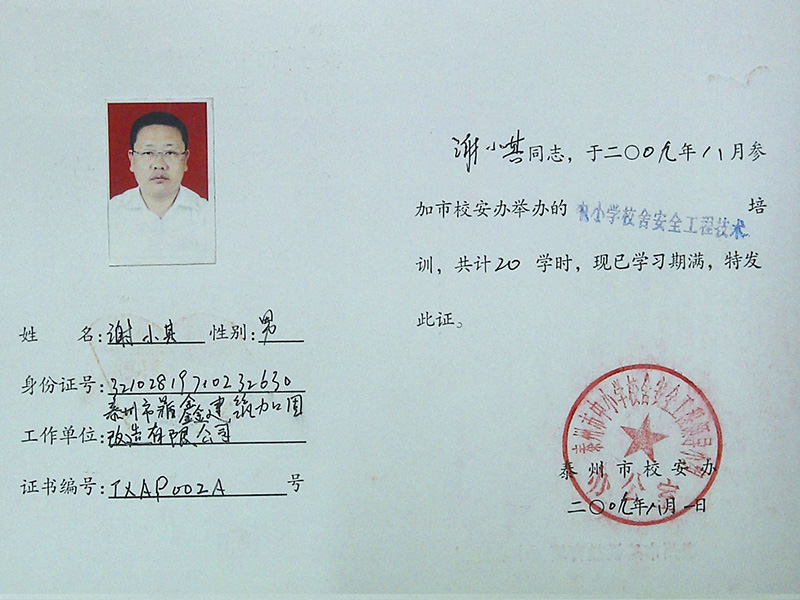 姓 名:谢小其 性别:男
身份证号:32102819710232630
泰州市 鑫建筑加固
工作单位:改造有限公司
证书编号:TXAP002A 号
谢小其同志，于二〇〇九年八月参
加市校安办举办的 中小学校舍安全工程技术 培
训，共计20 学时，现已学习期满，特发
此证。
泰州市中小学校舍安全工程领导小组
泰州市校安办
办公室
二〇〇九年八月一日